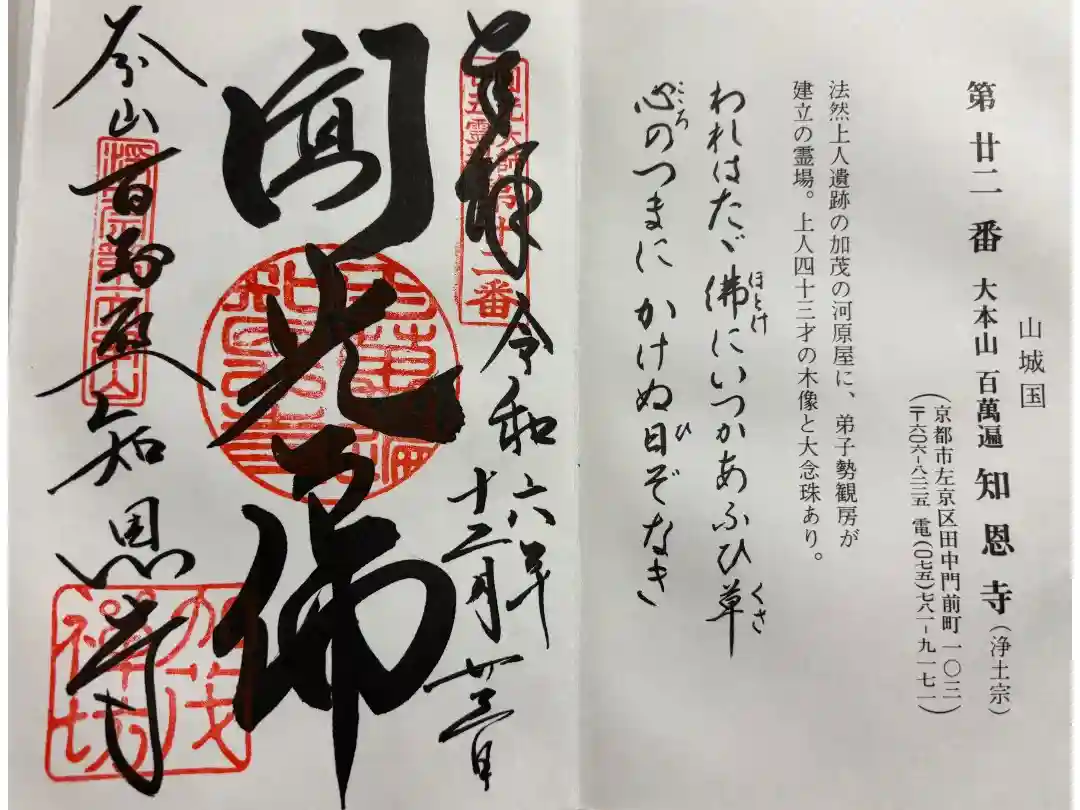 山城国
第廿二番 大本山 百萬遍 知恩寺(浄土宗)
(京都市左京区田中門前町一〇三
〒六〇六-八二二五 電(〇七五)七八一-九一七一)
法然上人遺跡の加茂の河原屋に、弟子勢観房が
建立の霊場。上人四十三才の木像と大念珠あり。
われはたゞ佛にいつかあふひ草
ほとけ
くさ
心のつまにかけぬ日ぞなき
こころ
ひ
奉拝 令和六年
十二月廿三日
圓光大師第廿二番
圓光佛
本山百萬遍知恩寺
加茂
禅坊